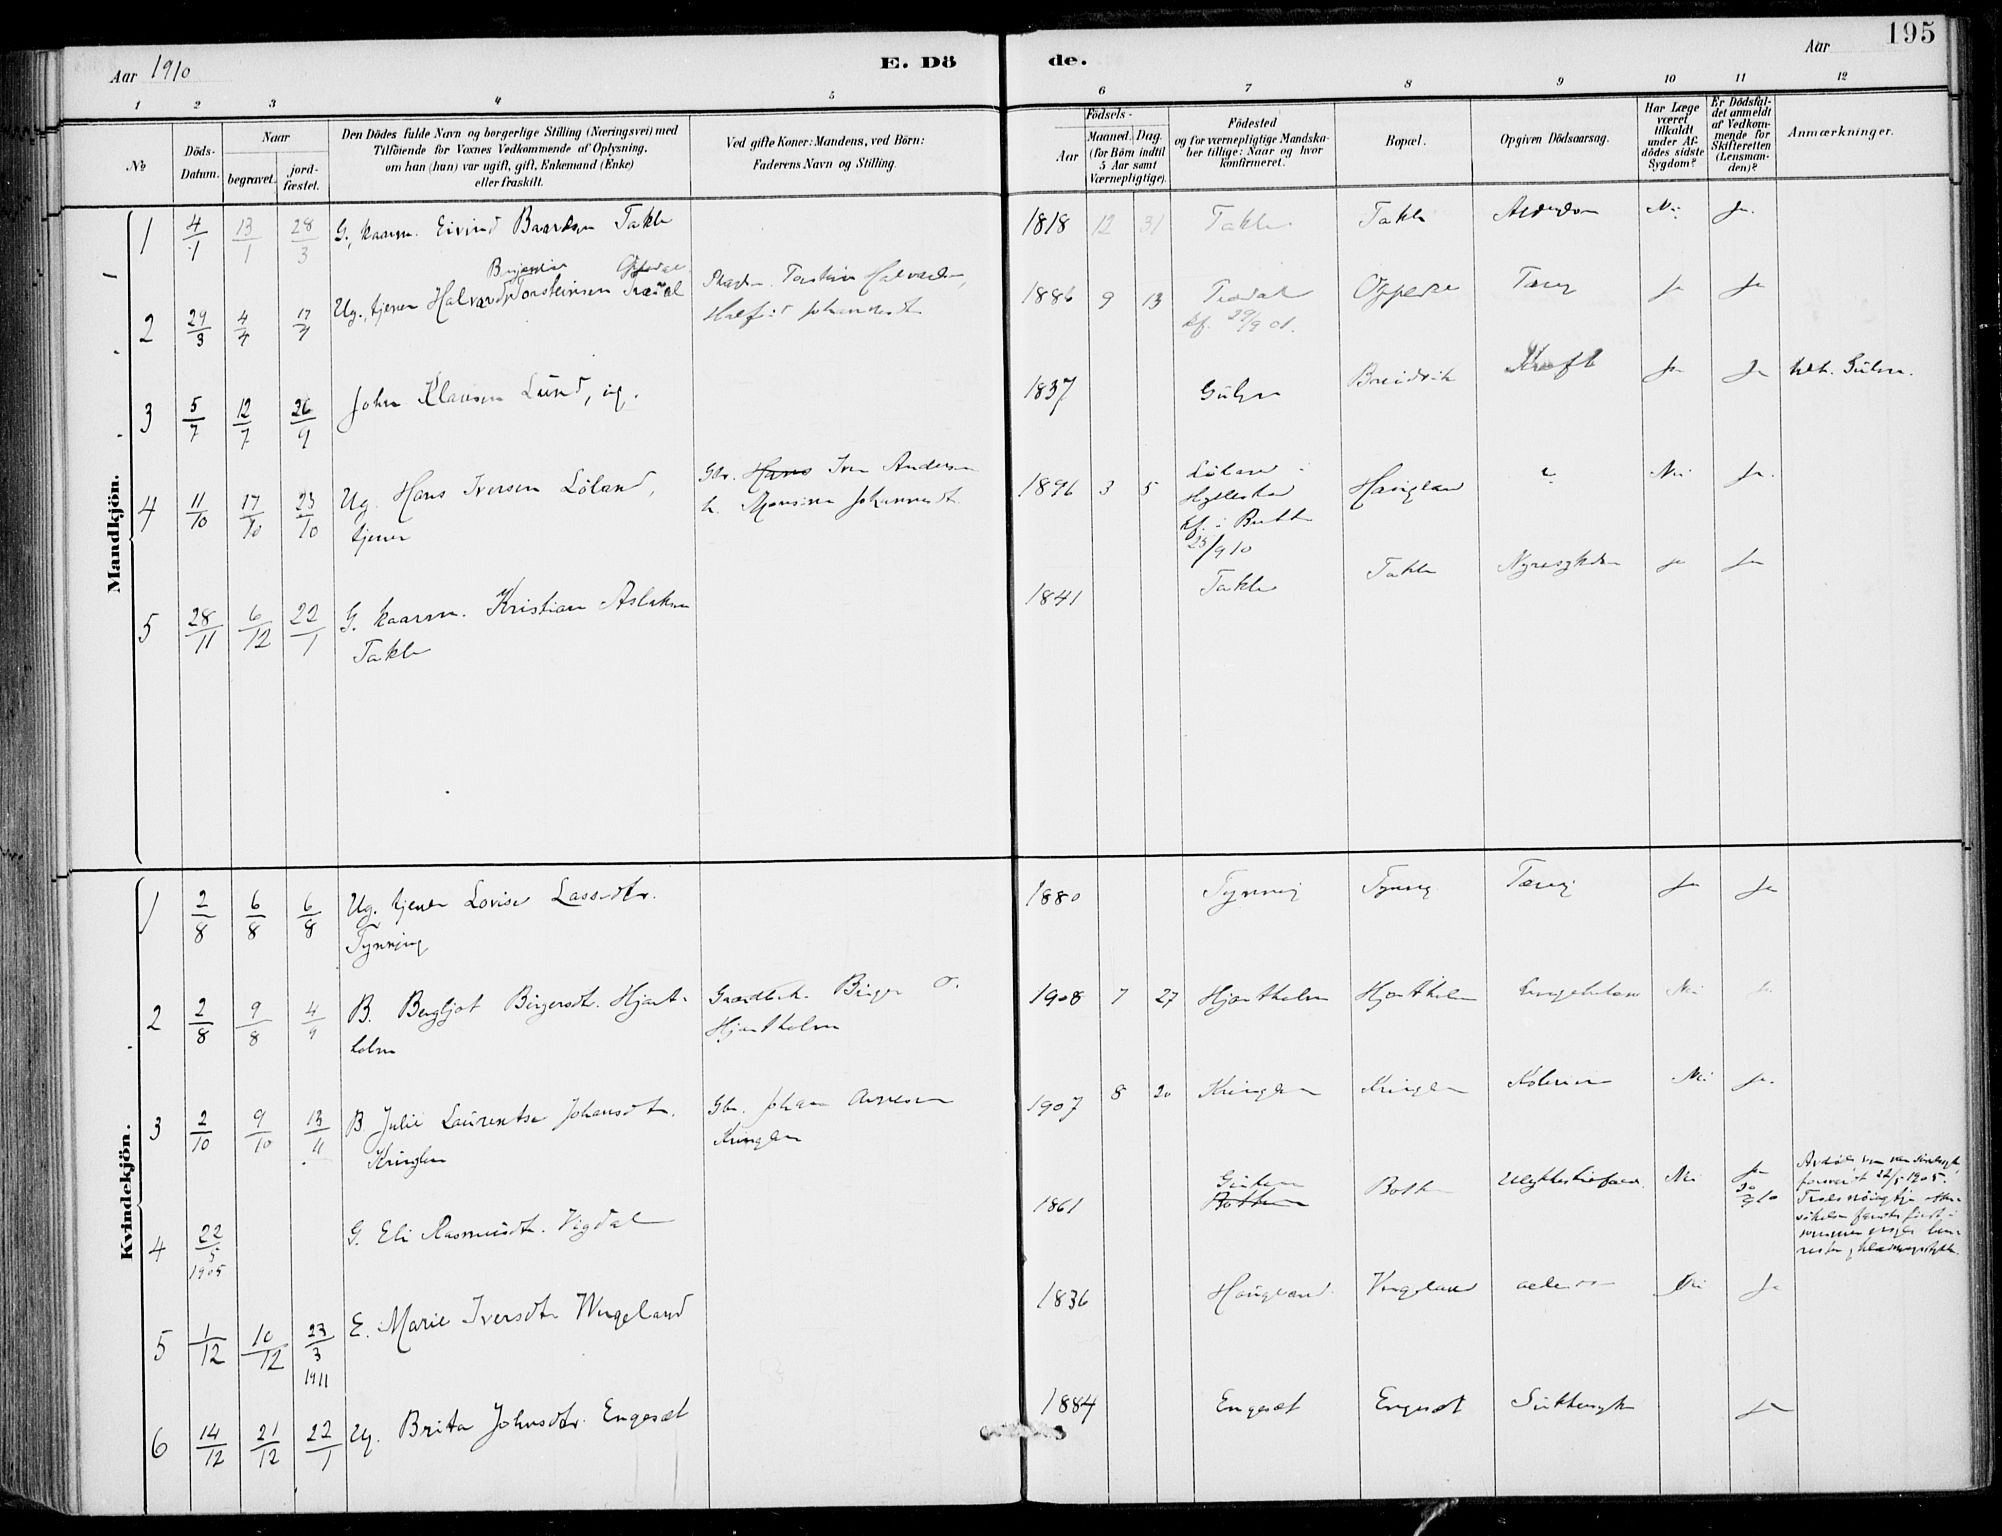 Aar 1910
E. Dö
de.
Aar
195
1 2 3 4 5 6 7 8 9 10 11 12
No
Döds-
Datum.
Naar
begravet.
jord-
fæstet.
Den Dödes fulde Navn og borgerlige Stilling (Næringsvei) med
Tilföiende for Voxnes Vedkommende af Oplysning,
om han (hun) var ugift, gift, Enkemand (Enke)
eller fraskilt.
Ved gifte Koner: Mandens, ved Börn:
Faderens Navn og Stilling
Födsels-
Aar
Maaned.
Dag.
(for Börn indtil
5 Aar samt
Værnepligtige).
Födested
og for værnepligtige Mandska-
ber tillige: Naar og hvor
konfirmeret.
Bopæl.
Opgiven Dödsaarsag.
Har Læge
været
tilkaldt
under Af-
dödes sidste
Sygdom?
Er Dödsfal-
det anmeldt
af Vedkom-
mende for
Skifteretten
(Lensman-
den)?
Anmærkninger.
Mandkjön.
1 4/1 13/1 28/3 G. kaarm. Eivind Baardsen Takle 1818 12 31 Takle Takle Alderdom Nei Ja.
2 29/3 4/4 17/4 Ug., tjener Halvard Torsteinsen 1886 9 13 Oppedal Tæring Ja Ja
Torstein Halvardsen,
Johannesdt.
kf. 29/9 01.
3 5/7 12/7 26/9 John Klausen Lund, ug. 1837 Gulen Breidvik Kræft Ja Ja
Gulen.
4 11/10 17/10 23/10 Ug. Hans Iversen Løland,
tjener
Gbr. Hans Iver Andersen
h. Monsine Johannesdt.
1896 3 5 Løland i
Hyllestad
kf. i Brekke
25/9 10
Haugland ? Nei Ja.
5 28/11 6/12 22/1 G. kaarm. Kristian Aslaksen
Takle
1841 Takle Takle Nyresygdom Ja Ja
Kvindekjön.
1 2/8 6/8 6/8 Ug. tjener Lovise Lassedtr.
Tynning
1880 Tynning Tynning Tæring Ja Ja
2 2/8 9/8 4/9 B. Bergljot Birgersdt. Hjart-
holm
Birger O.
Hjartholm
1908 7 27 Hjartholm Hjartholm Nei Ja
3 2/10 9/10 13/11 B Julie Laurentse Johansdtr.
Kringlen
Gbr. Johan Arnesen
Kringlen
1907 8 20 Kringlen Kringlen Kolerine Nei Ja.
4 22/5 1905 G. Eli Rasmusdt. Vigdal
1861 Gulen
Botten
Botten Ulykkestilfælde Nei Ja
5 1/12 10/12 23/3 1911 E. Marie Iversdtr Wergeland
1836 Haugland Vergeland Nei Ja
6 14/12 21/12 22/1 Ug. Brita Johnsdtr. Engesæt
1884 Engesæt Engesæt Sukkersyke Ja